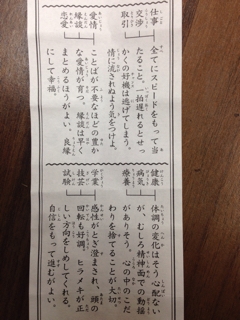 仕事
交渉
取引
全てにスピードをもって当
たること。一拍遅れるとせっ
かくの好機は逃げてしまう。
情に流されぬよう気をつけよ。
愛情
縁談
恋愛
ことばが不要なほどの豊か
な愛情が育つ。縁談は早く
まとめるほうがよい。良縁
にして幸福。
健康
病気
療養
体調の変化はそう心配ない
が、むしろ精神面での動揺
がありそう。心の中のこだ
わりを捨てることが大切。
学業
技芸
試験
感性がとぎ澄まされ、頭の
回転も好調。ヒラメキが正
しい方向をしめしてくれる。
自信をもって進むがよい。